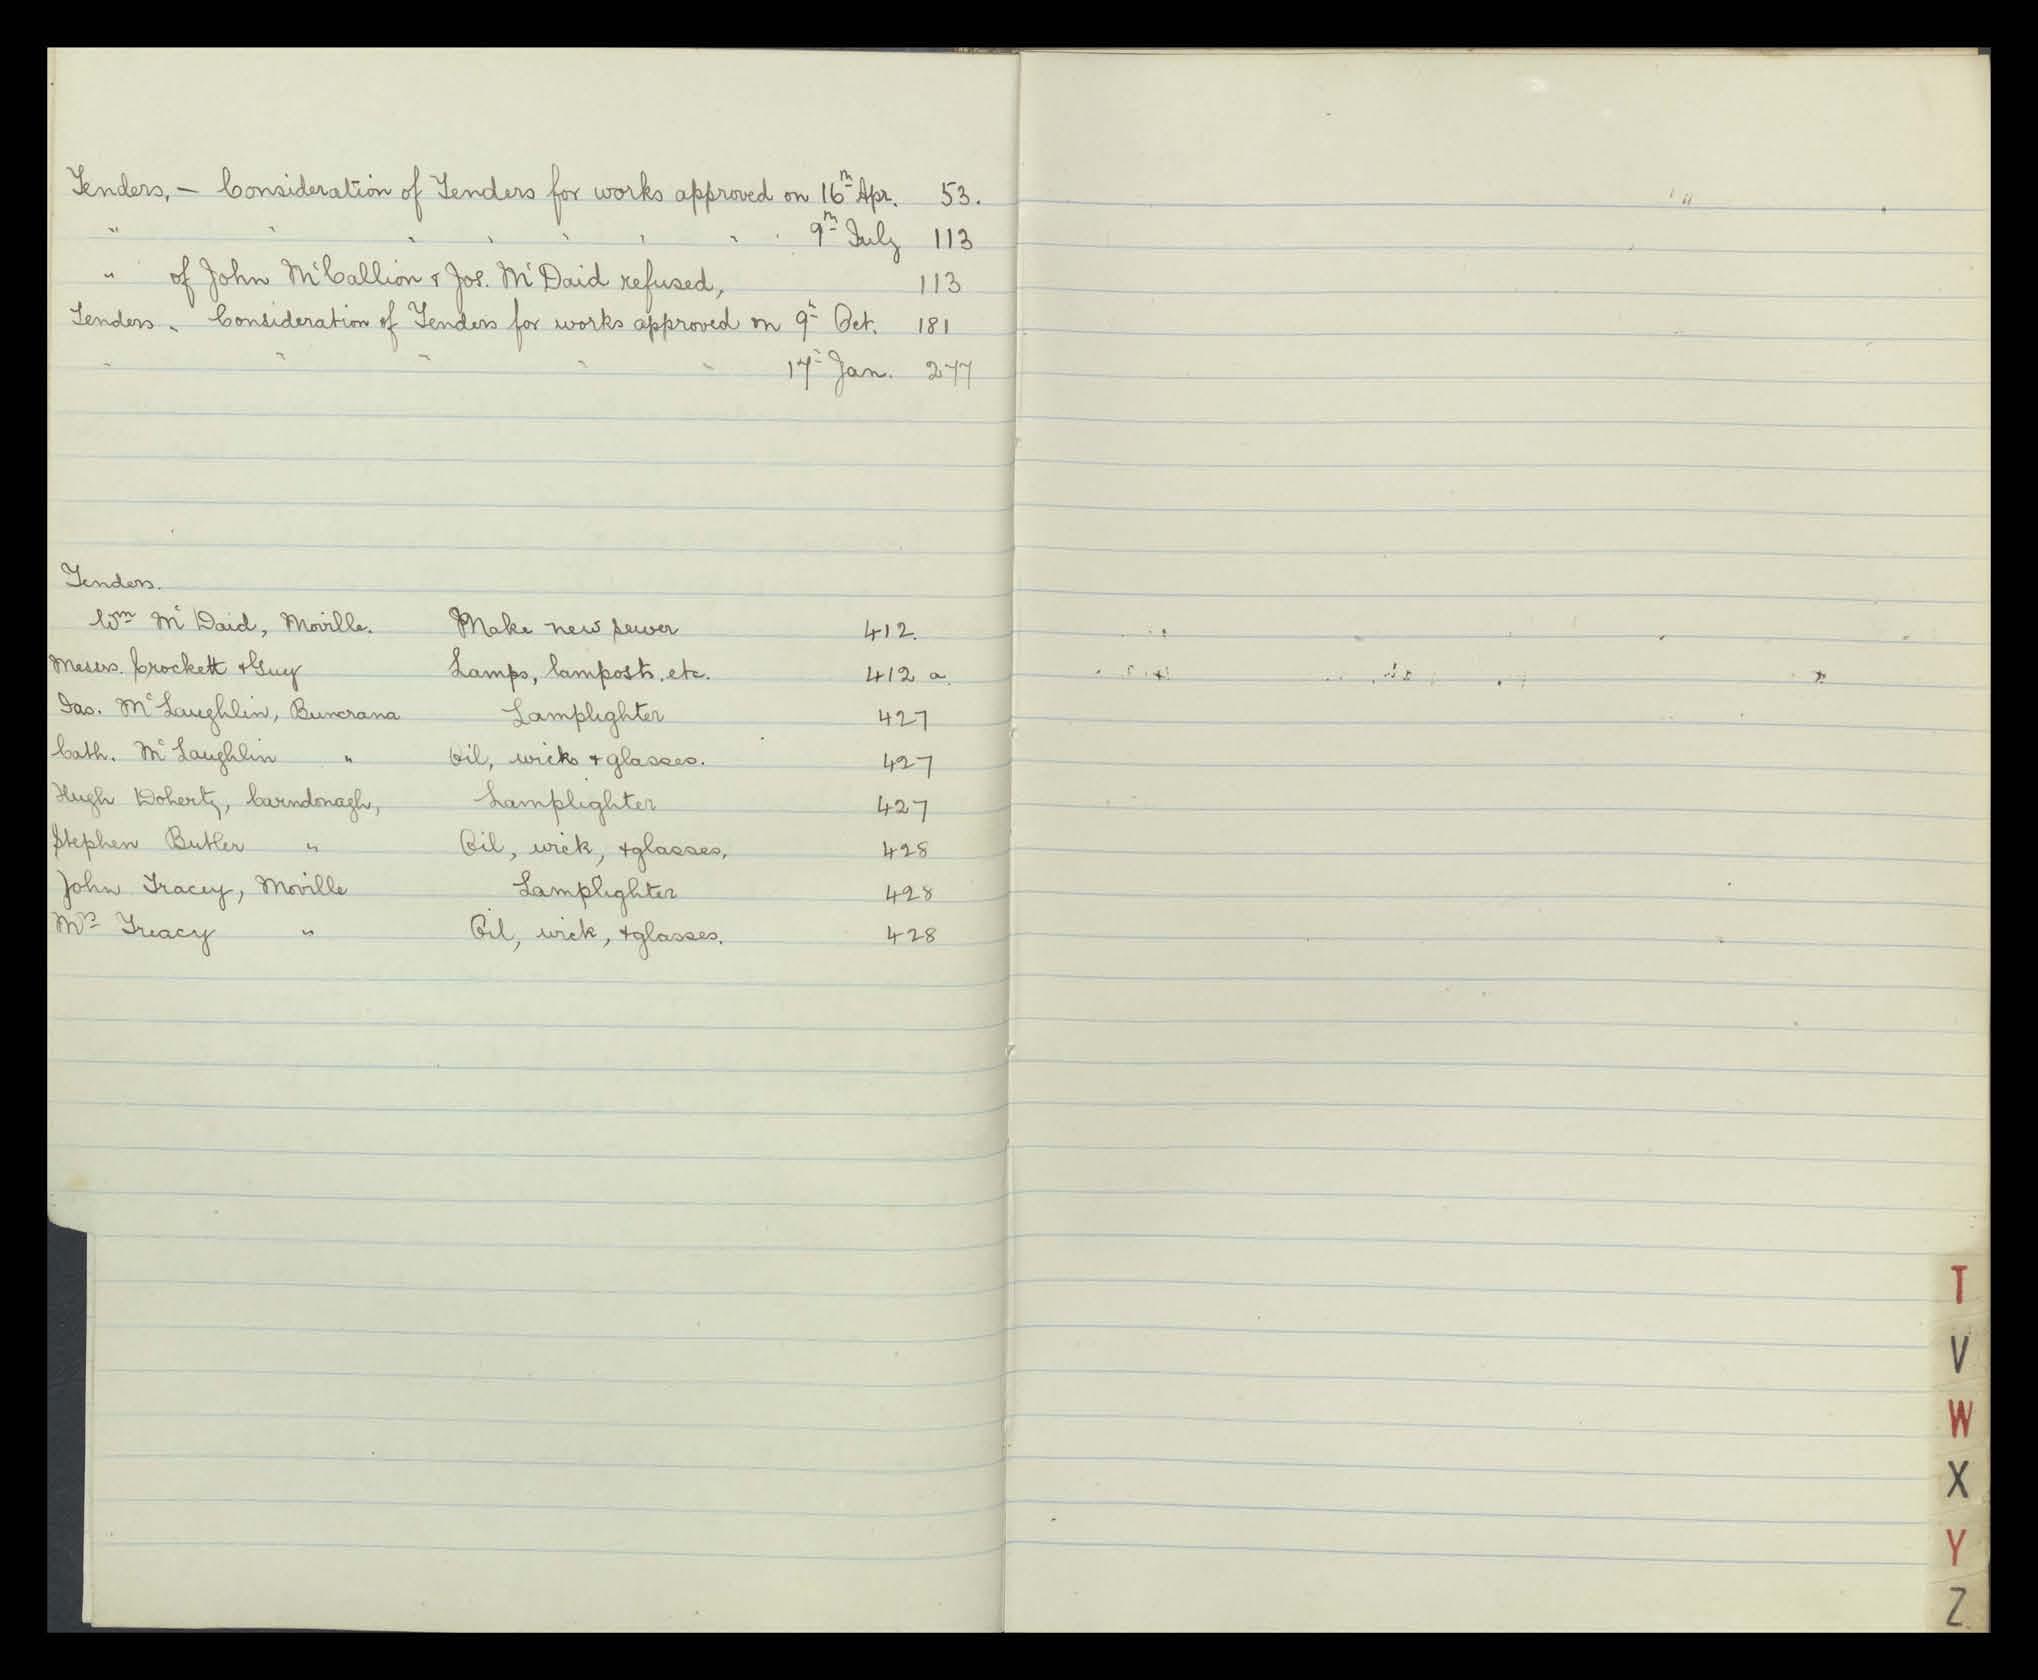 Tenders, — Consideration of Tenders for works approved on 16th Apr. 53.
" " " " " " " " 9th July 113
" of John McCallion & Jos. McDaid refused, 113
Tenders - Consideration of Tenders for works approved on 9th Oct. 181
" " " " " 17th Jan. 277
Tenders.
Wm McDaid, Moville. Make new sewer 412.
Messrs. Crockett & Guy Lamps, lamposts, etc. 412 a.
Jas. McLaughlin, Buncrana Lamplighter 427
Cath. McLaughlin " Oil, wicks & glasses. 427
Hugh Doherty, Carndonagh, Lamplighter 427
Stephen Butler " Oil, wick, & glasses, 428
John Tracey, Moville Lamplighter 428
Mrs Treacy " Oil, wick, & glasses. 428
T
V
W
X
Y
Z